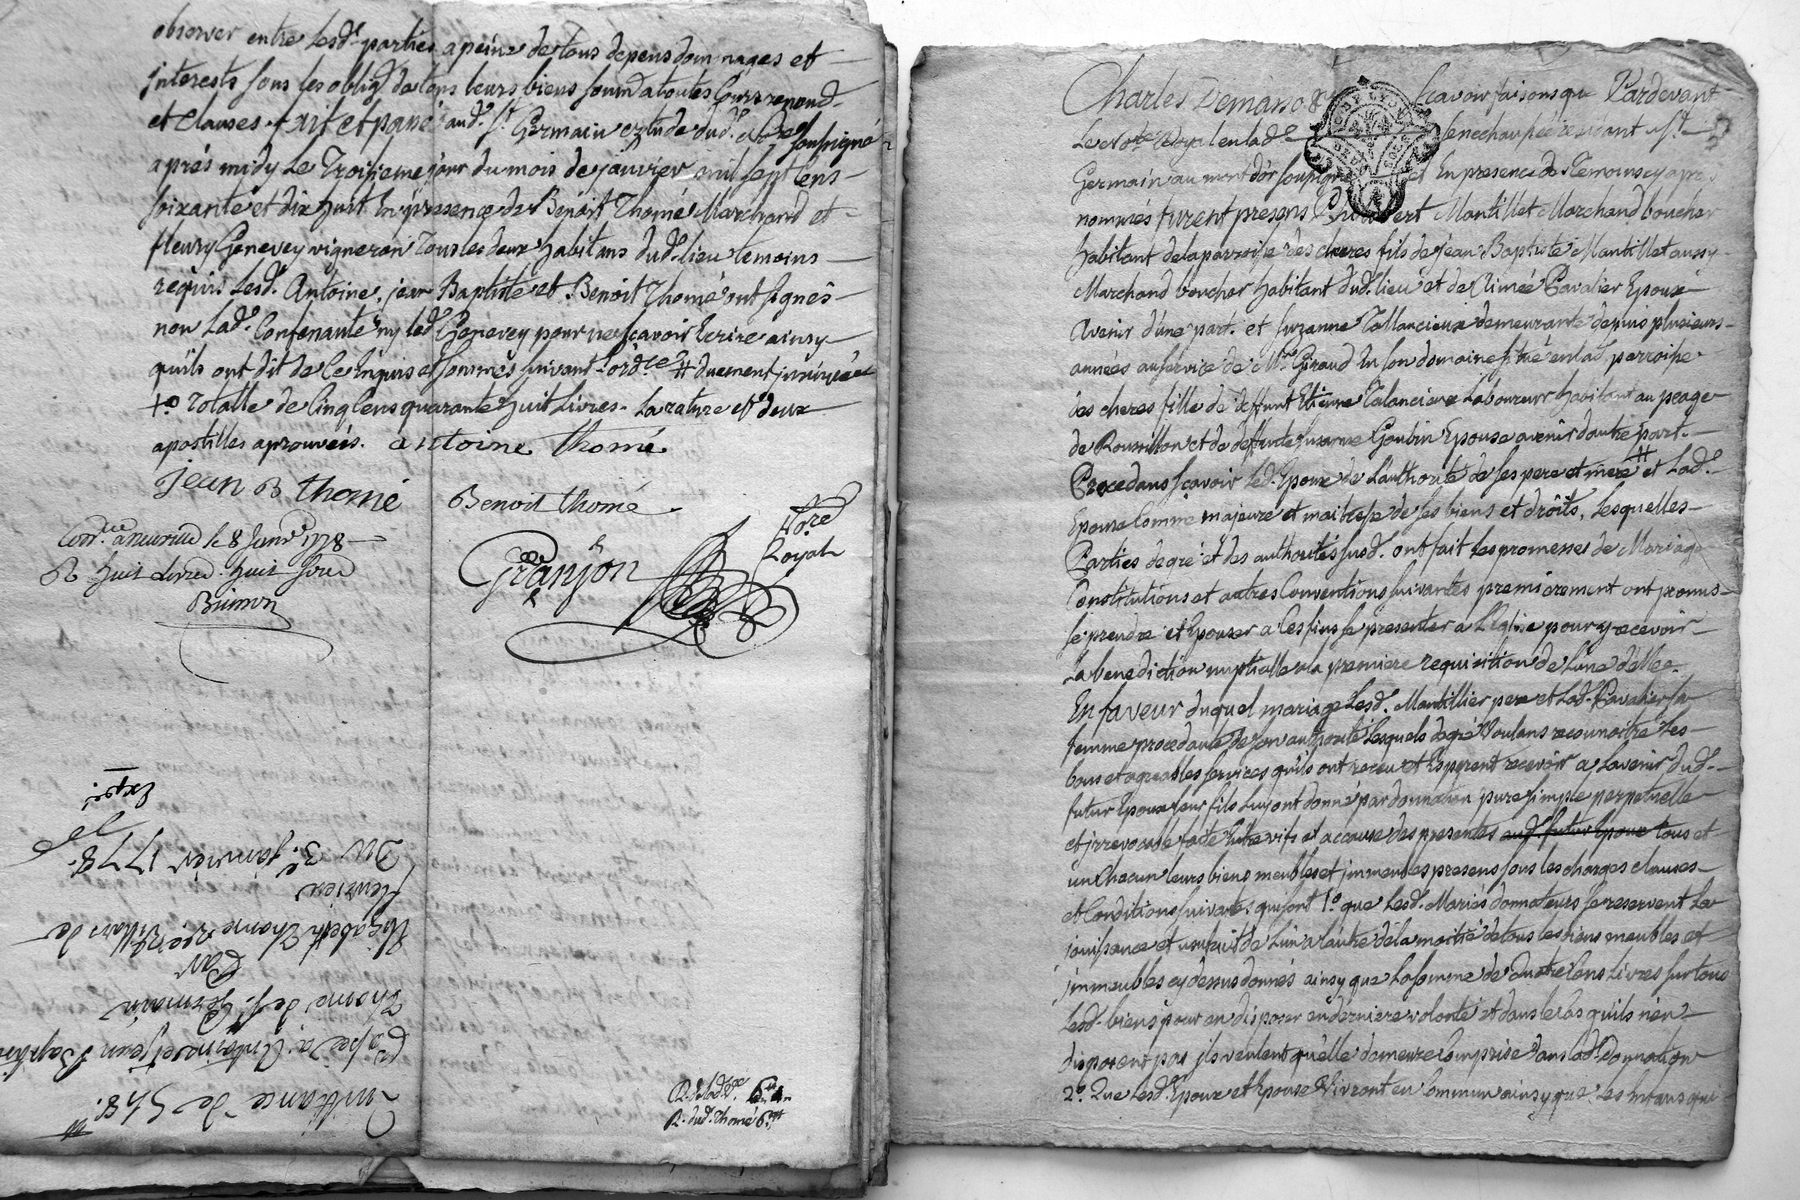 observer entre lesd. parties a peine de tous depens dommages et
interests sous les oblig. de tous leurs biens soum. a toutes Cours renond.
et clauses. fait et passé aud. St. Germain etude dud. Nore soussigné
aprés midy Le Troisieme jour du mois de janvier mil sept Cens
soixante et dix huit En presence de Benoit Thomé Marchand et
fleury Genevey vigneron Tous les deux habitans dud. lieu temoins
requis Lesd. Antoine, jean Baptiste et Benoit Thomé ont signés
non Lad. Contenante ny led. Genevey pour ne sçavoir Ecrire ainsy
qu'ils ont dit de ce Enquis et sommés suivant l'ordce # duement
+o Totalle de Cinq Cens quarante huit Livres. La rature et deux
apostilles aprouvées. antoine thomé
jean B thomé
Benoit thomé
Nore
Royal
Granjon
Con.lle a neuville le 8 Janv. 1778
R huit Livres huit sous
Brimon
Quittance de 548.
Passée à Antoine et Jean Baptiste
Thomé de St. Germain
Par
Elizabeth Thomé ve Villars de
fleurieu
Du 3e. janvier 1778.
Exp.é
R. de lad.
R. dud. Thomé 6
Charles Demano &
sçavoir faisons que Pardevant
Le Note Royal en lad.
senechaussée residant a St.
Germain au mont d'or soussigné et En presence des Temoins cy apres
nommés furent presens Mantillet Marchand boucher
habitant de la parroisse des cheres fils de Jean Baptiste Mantillet aussy
Marchand boucher habitant dud. lieu et de Aimée Cavalier Epoux
Avenir d'une part. et Suzanne Tallancieux demeurante depuis plusieurs
années au service de Mr. Giraud En son domaine situé en lad. parroisse
des cheres fille de deffunt Etienne Talancieux Laboureur habitant au peage
de Roussillon et de deffunte Suzanne Goubin Epouse avenir d'autre part.
Procedans sçavoir led. Epoux de l'authorité de ses pere et mere # et Lad.
Epouse Comme majeure et maitresse de ses biens et droits, Lesquelles
Parties de gré et des authorités susd. ont fait Les promesses de Mariage
Constitutions et autres Conventions suivantes premierement ont promis
se prendre et Epouser a Ces fins se presenter a l'Eglise pour y recevoir
La benediction nuptialle a la premiere requisition de L'une d'elles.
En faveur duquel mariage Lesd. Mantillier pere et Lad. Cavalier sa
femme procedante de son authorité Lesquels de gré Voulans reconnoitre les
bons et agreables services qu'ils ont receu et Esperent recevoir a L'avenir dud.
futur Epoux leur fils Luy ont donné par donnation pure simple perpetuelle
et irrevocable faite Entre vifs et a cause des presentes aud. futur Epoux tous et
un Chacun leurs biens meubles et immeubles presens sous les charges clauses
et Conditions suivantes qui sont 1o. que Lesd. Mariés donnateurs se reservent La
jouissance et usufruit de L'un a l'autre de la moitié de tous les biens meubles et
immeubles cy dessus donnés ainsy que La somme de Quatre Cens Livres sur tous
Lesd. biens pour en disposer en derniere volonté et dans le Cas qu'ils n'en
disposent pas ils veulent qu'elle demeure Comprise dans lad. Donnation
2o. Que Lesd. Epoux et Epouse Vivront en Commun ainsy que Les Enfans qui